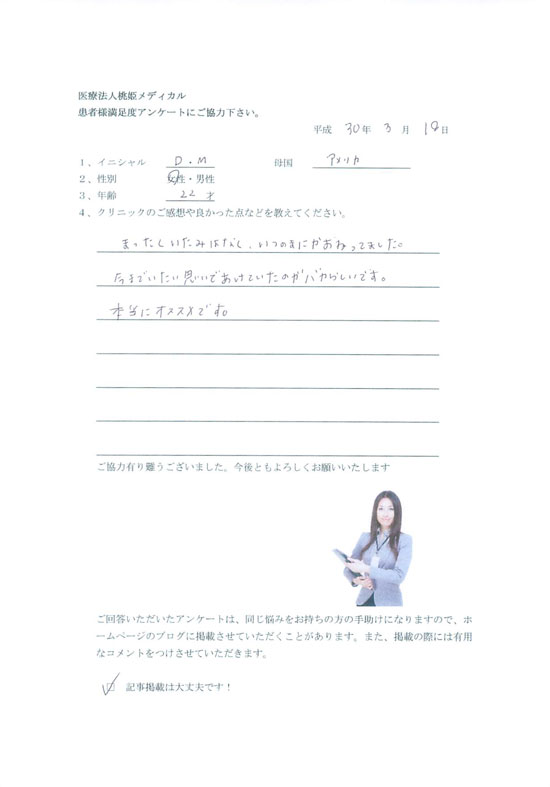 医療法人桃姫メディカル
患者様満足度アンケートにご協力下さい。
平成 30年 3 月 18日
1、イニシャル D・M 母国 アメリカ
2、性別 女性・男性
3、年齢 22 才
4、クリニックのご感想や良かった点などを教えてください。
まったくいたみはなく、いつのまにかおわってました。
今までいたい思いであけていたのがバカらしいです。
本当にオススメです。
ご協力有り難うございました。今後ともよろしくお願いいたします
ご回答いただいたアンケートは、同じ悩みをお持ちの方の手助けになりますので、ホ
ームページのブログに掲載させていただくことがあります。また、掲載の際には有用
なコメントをつけさせていただきます。
☑ 記事掲載は大丈夫です！